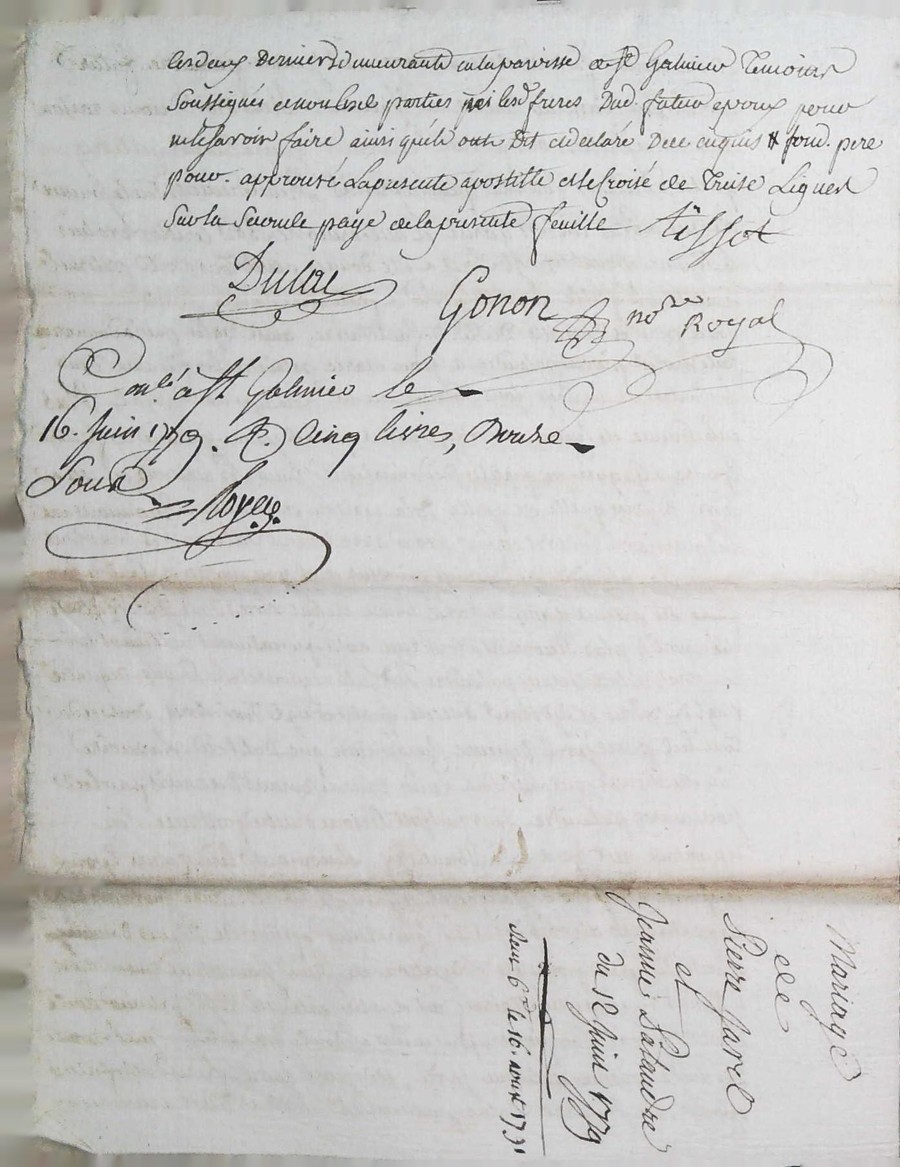 les deux derniers demeurants en la paroisse de St Galmier Temoins
Soussignés et non lesd parties ni lesd freres Dud. futur epoux pour
ne le savoir faire ainsi qu'ils ont Dit et declaré De ce enquis & fond. pere
pouv. approuvé La presente apostille et le croisé de Treise Lignes
Sur la Seconde page de la presente feuille Tissot
Dulac
Gonon nore Royal
Conlé à St Galmier le
16. Juin 1779. R. Cinq livres, Douze
Sous
Royer
Mariage
de
Pierre Javel
et
Jeanne Lataudre
du 12 Juin 1779